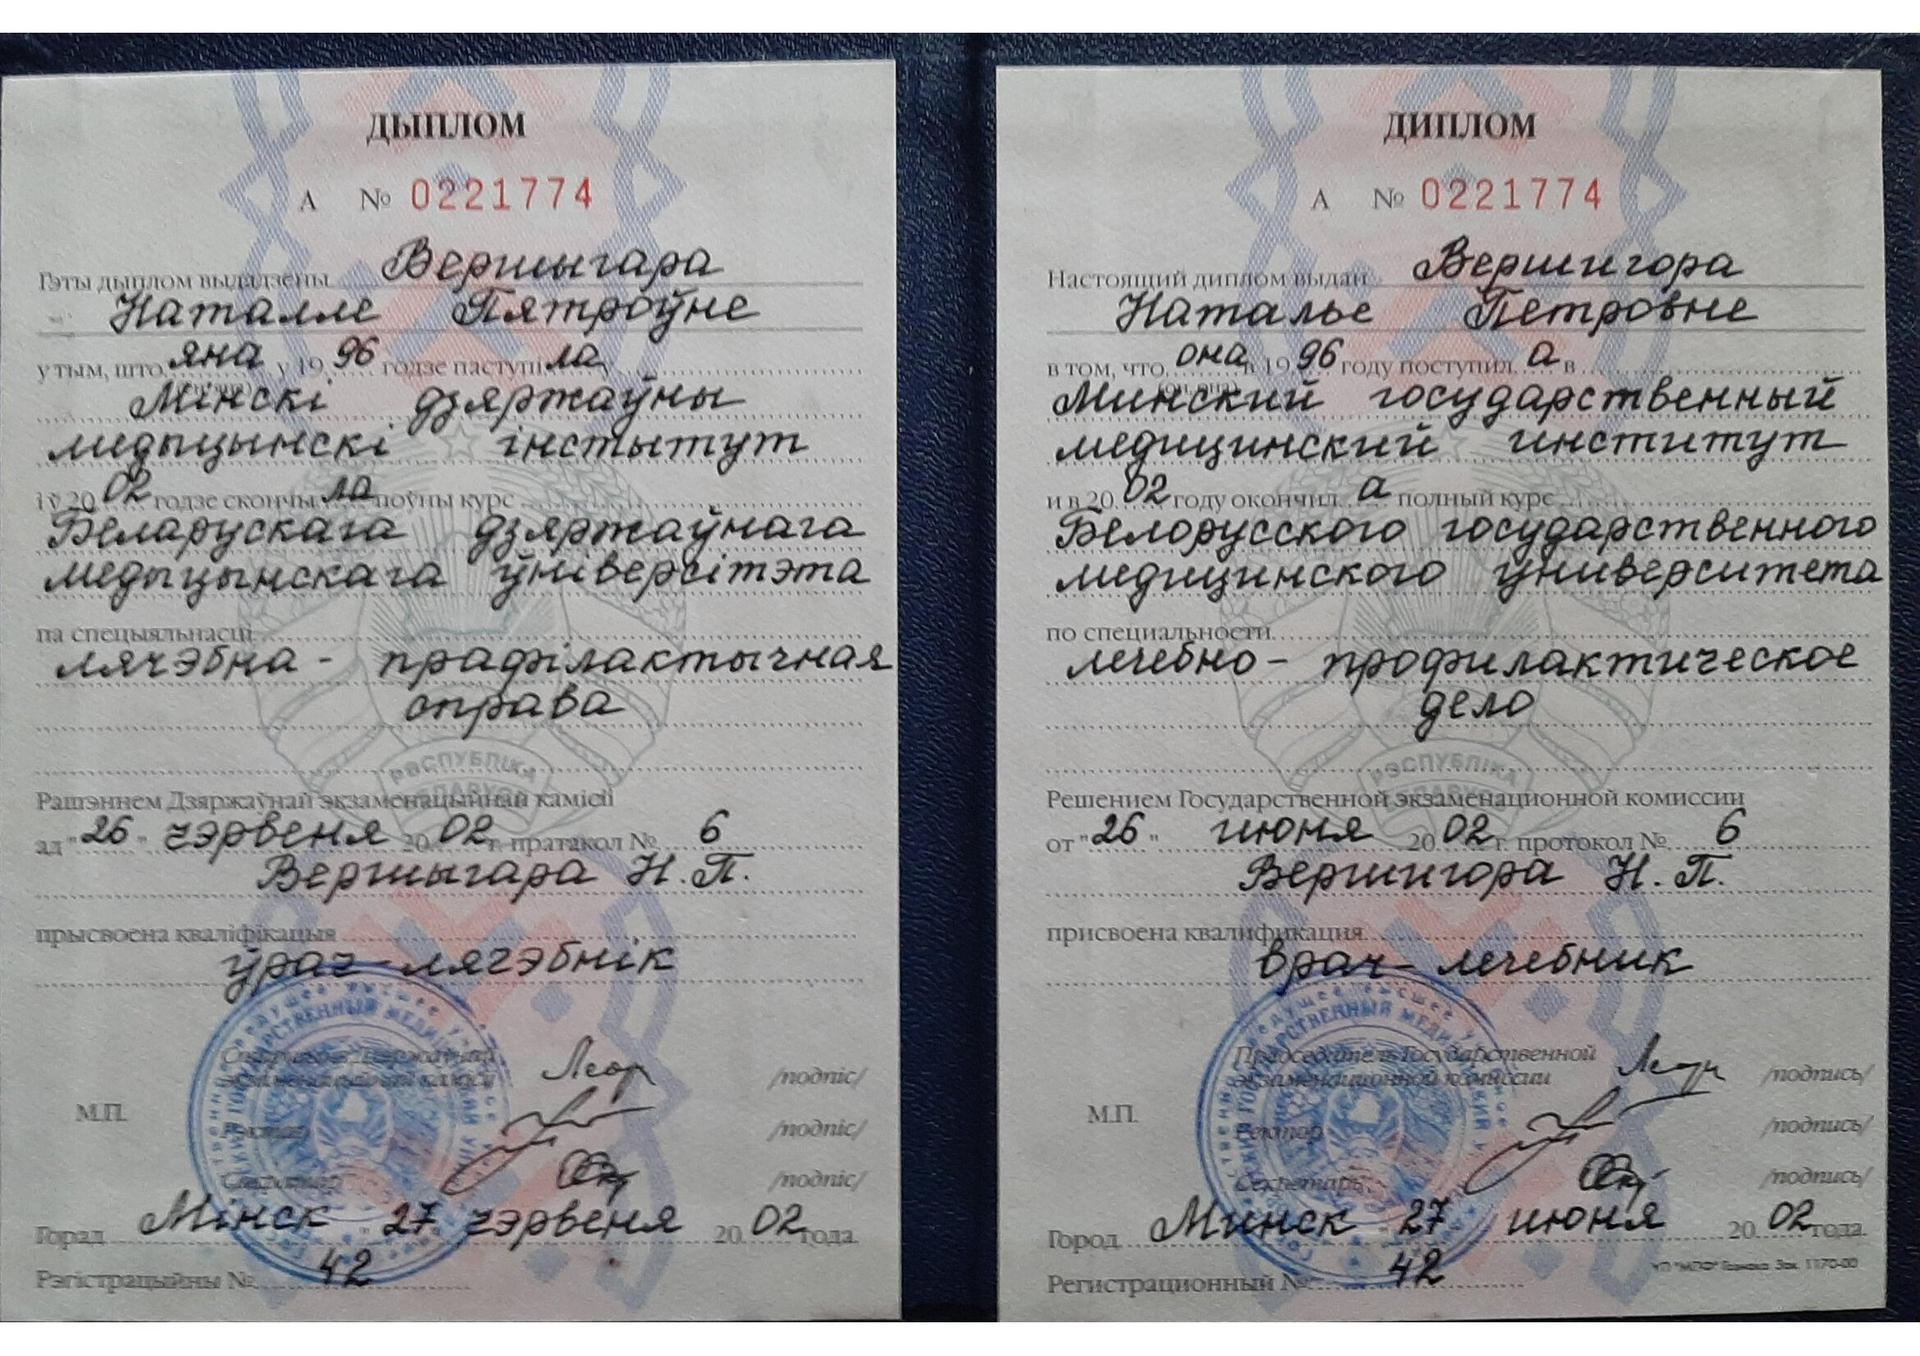 ДЫПЛОМ
А № 0221774
Гэты дыплом выдадзены Вершыгара
Наталле Пятроўне
у тым, што яна у 19 96 годзе паступі ла у
Мінскі дзяржаўны
медыцынскі інстытут
і ў 20 02 годзе скончы ла поўны курс
Беларускага дзяржаўнага
медыцынскага ўніверсітэта
па спецыяльнасці
лячэбна - прафілактычная
справа
РЭСПУБЛІКА
БЕЛАРУСЬ
Рашэннем Дзяржаўнай экзаменацыйнай камісіі
ад "26" чэрвеня 20 02 г. пратакол № 6
Вершыгара Н. П.
прысвоена кваліфікацыя
ўрач-лячэбнік
Старшыня Дзяржаўнай
экзаменацыйнай камісіі /подпіс/
М.П.
Рэктар /подпіс/
Сакратар /подпіс/
Горад Мінск 27 чэрвеня 20 02 года
Рэгістрацыйны № 42
ДИПЛОМ
А № 0221774
Настоящий диплом выдан Вершигора
Наталье Петровне
в том, что она в 19 96 году поступил а в
(он, она)
Минский государственный
медицинский институт
и в 20 02 году окончил а полный курс
Белорусского государственного
медицинского университета
по специальности
лечебно - профилактическое
дело
РЭСПУБЛІКА
БЕЛАРУСЬ
Решением Государственной экзаменационной комиссии
от "26" июня 20 02 г. протокол № 6
Вершигора Н. П.
присвоена квалификация
врач-лечебник
Председатель Государственной
экзаменационной комиссии /подпись/
М.П.
Ректор /подпись/
Секретарь /подпись/
Город Минск 27 июня 20 02 года.
Регистрационный № 42
Зак. 1170-00